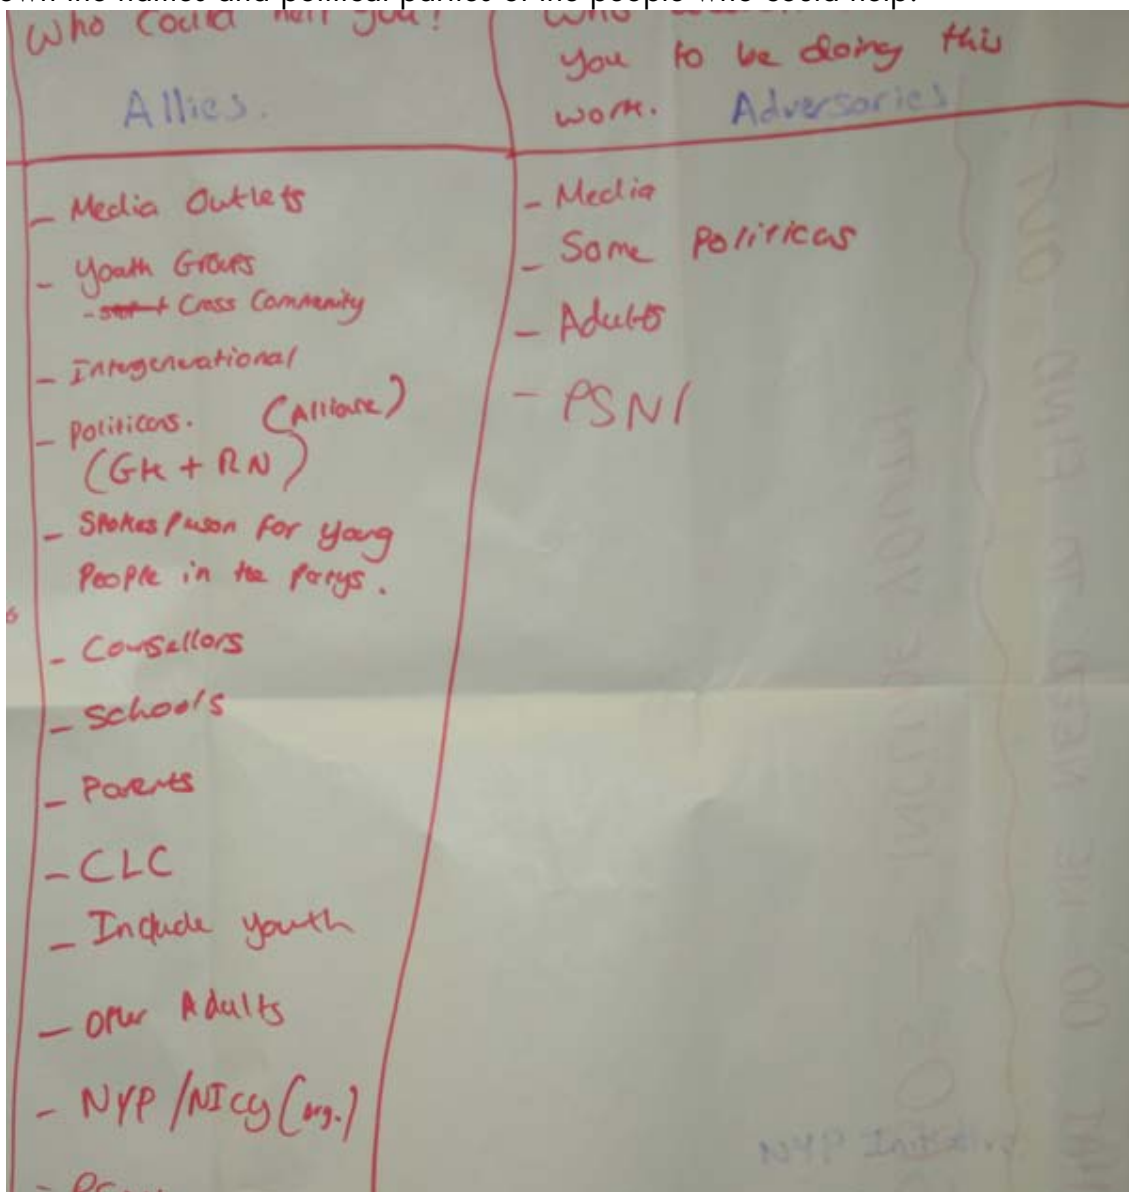 own the names and political parties of the people who could help.
Who could help you?
Allies.
- Media Outlets
- Youth Groups
- Cross Community
- Intergenerational
- Politicans. (Alliance)
(GK + RN)
- Spokes Person For young
People in the Partys.
- Counsellors
- Schools
- Parents
- CLC
- Include youth
- Other Adults
- NYP / NICCY (org.)
Who
you to be doing this
work. Adversaries
- Media
- Some Politicans
- Adults
- PSNI